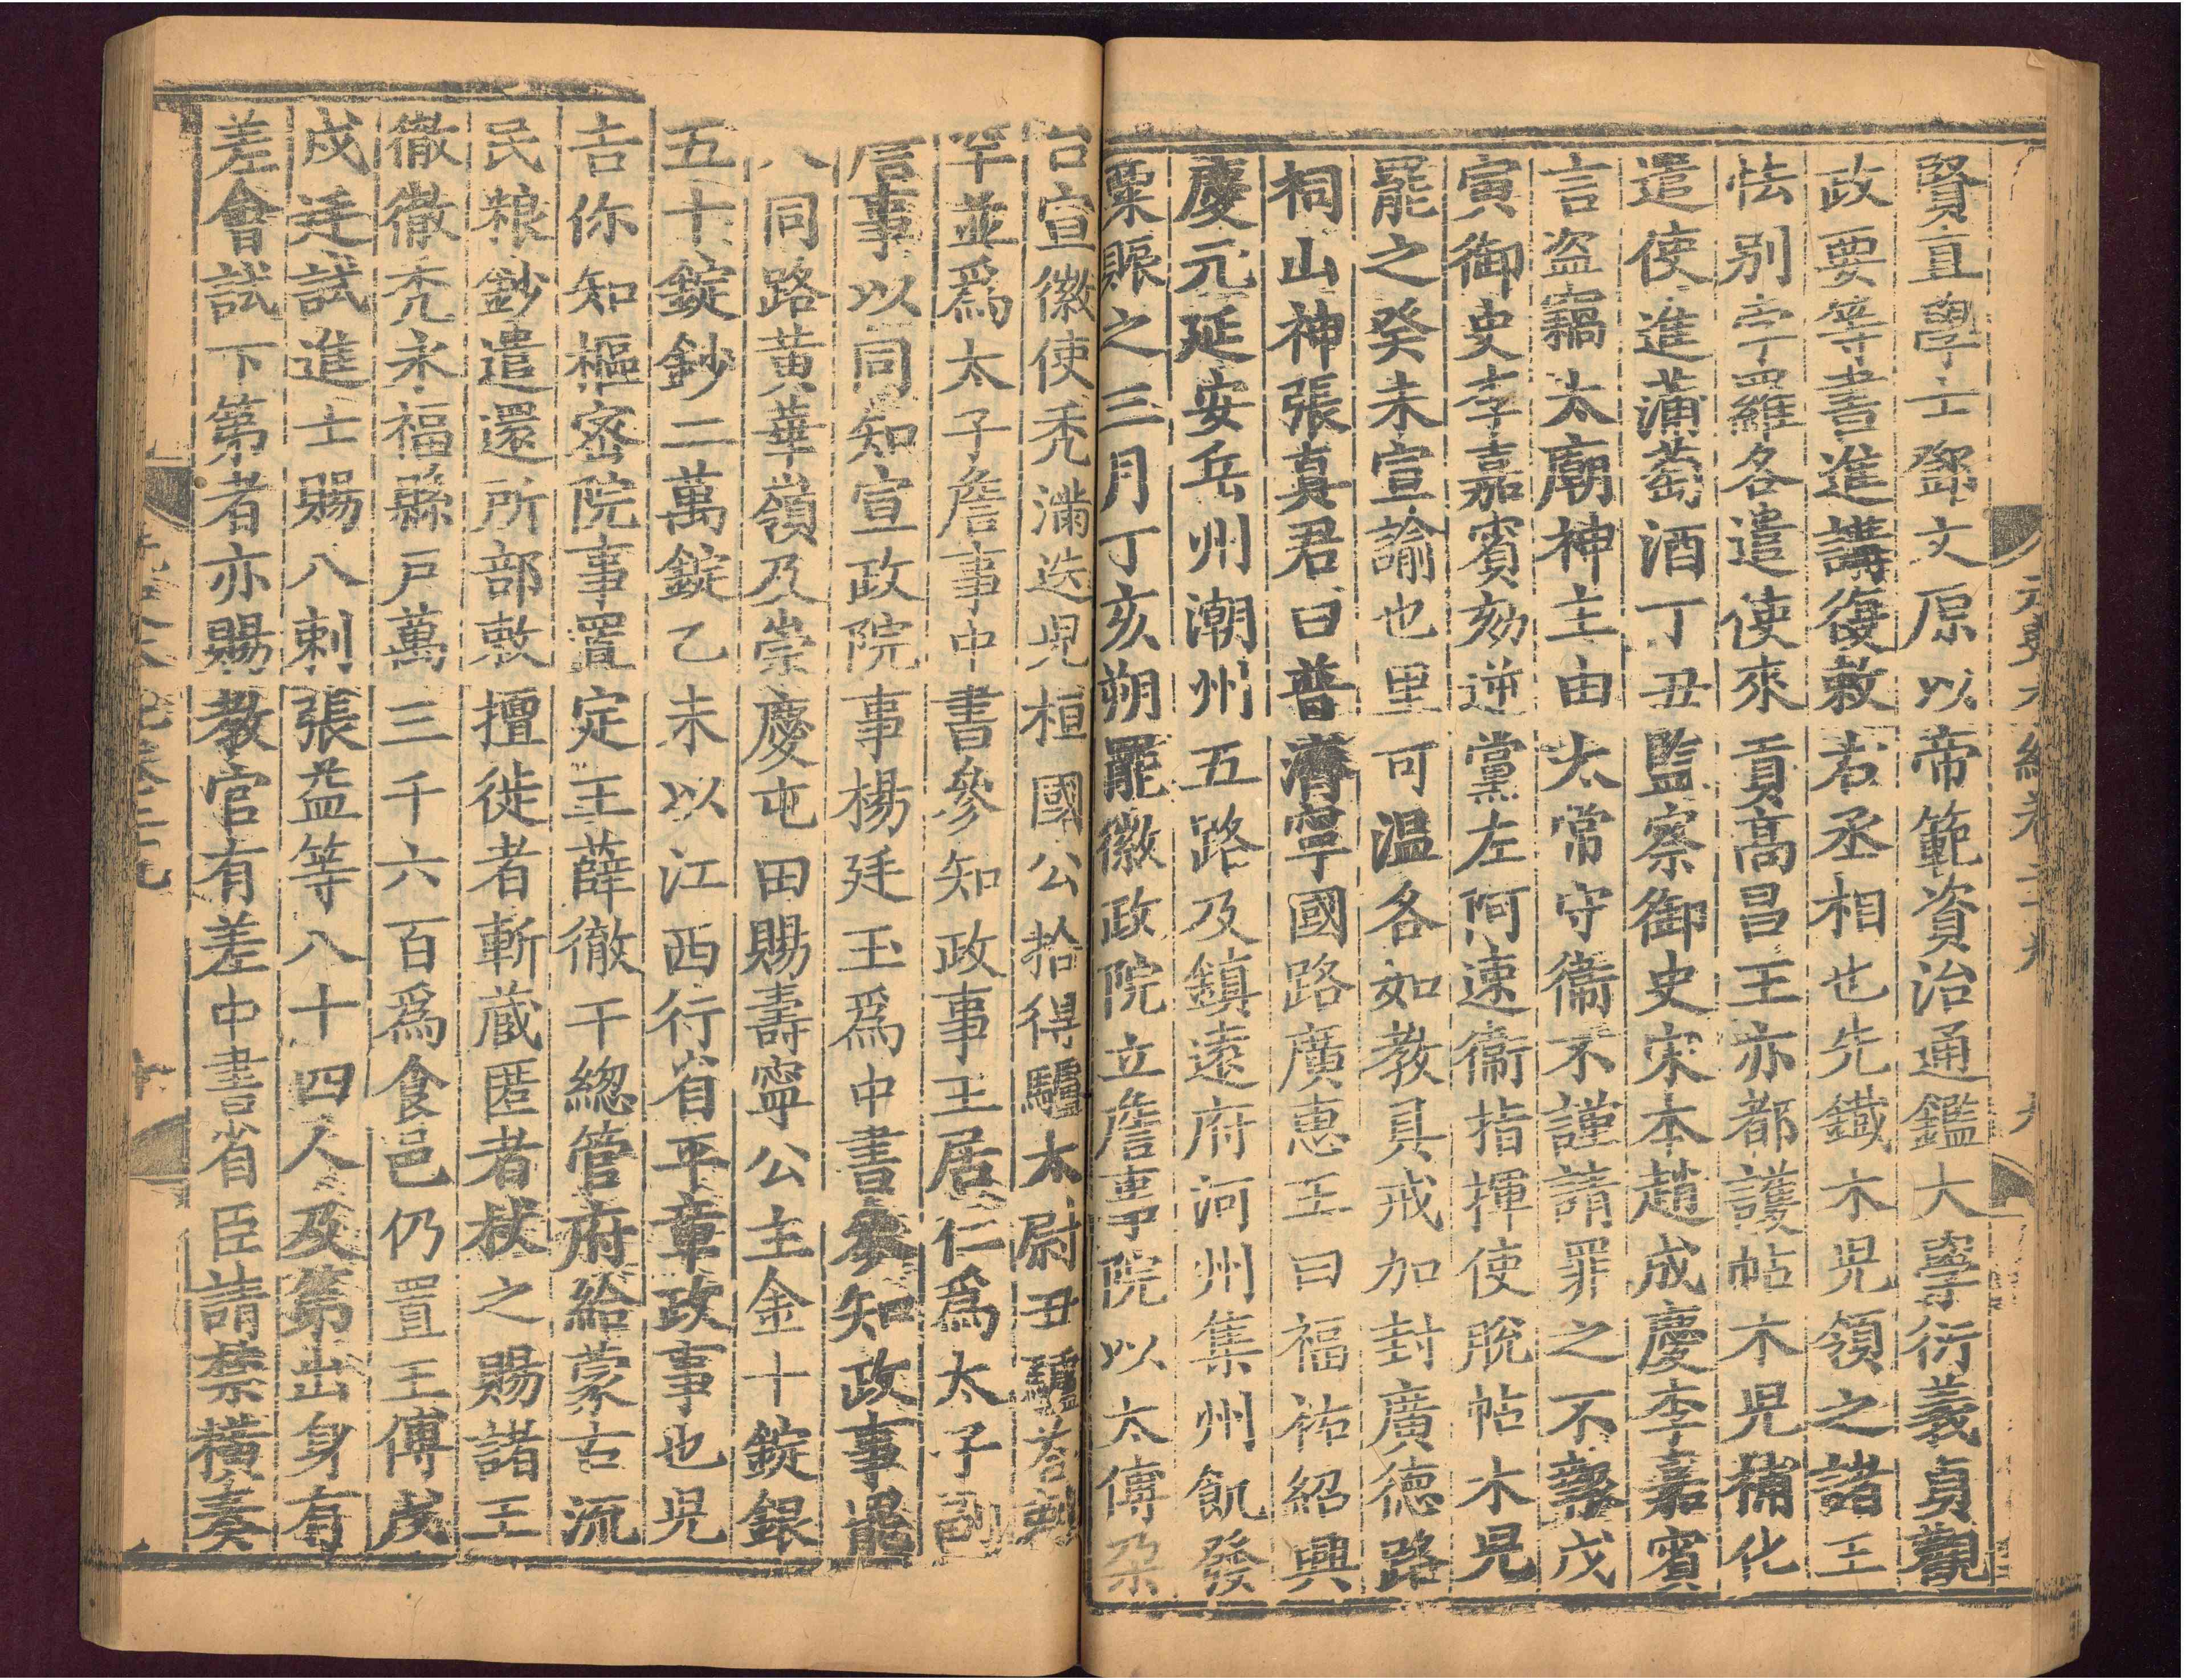 賢直學士鄧文原以帝範資治通鑑大學衍義貞觀
政要等書進講復敕右丞相也先鐵木児領之諸王
怯别孛羅各遣使來貢髙昌王亦都護帖木児補化
遣使進蒲萄酒丁丑監察御史宋本趙成慶李嘉賔
言盗竊太廟神主由太常守衛不謹請罪之不報戊
寅御史李嘉賔劾逆黨左阿速衛指揮使脱帖木児
罷之癸未宣諭也里可温各如教具戒加封廣德路
祠山神張真君曰普濟寧國路廣惠王曰福祐紹興
慶元延安岳州潮州五路及鎮遠府河州集州飢發
粟賑之三月丁亥朔罷徽政院立詹事院以太傅朶
台宣徽使秃滿迭児桓國公拾得驢太尉丑驢荅剌
罕並為太子詹事中書參知政事王居仁為太子副
詹事以同知宣政院事楊廷玉為中書參知政事罷
大同路黄華嶺及崇慶屯田賜壽寧公主金十錠銀
五十錠鈔二萬錠乙未以江西行省平章政事也児
吉你知樞密院事置定王薛徹干緫管府給蒙古流
民粮鈔遣還所部敕擅徙者斬蔵匿者杖之賜諸王
徹徹秃永福縣戸萬三千六百為食邑仍置王傅戊
戌廷試進士賜八剌張益等八十四人及第出身有
差會試下第者亦賜教官有差中書省臣請禁横奏